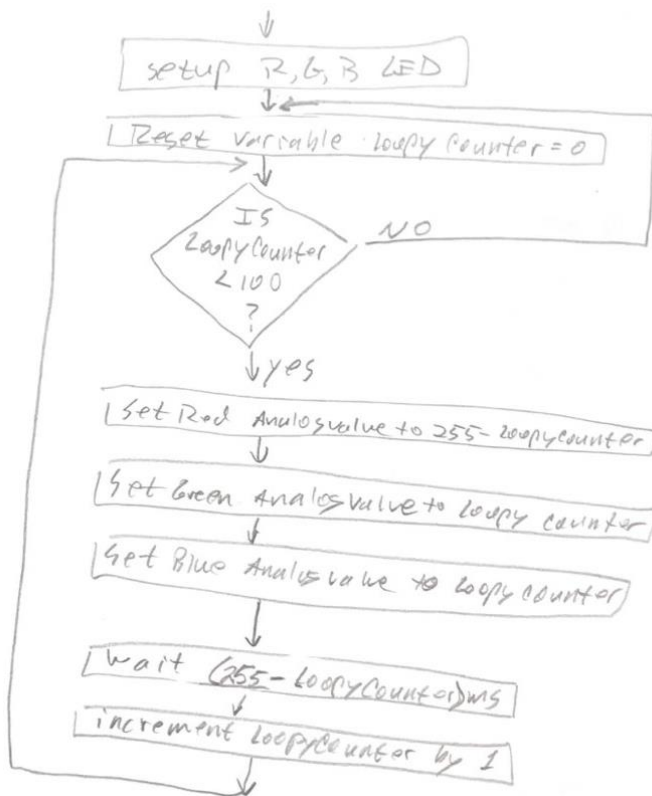 setup R, G, B LED
Reset variable loopyCounter = 0
Is
LoopyCounter
< 100
?
NO
yes
Set Red Analog value to 255 - loopycounter
Set Green Analog value to loopy counter
Set Blue Analog value to loopy counter
Wait (255 - LoopyCounter)ms
increment LoopyCounter by 1